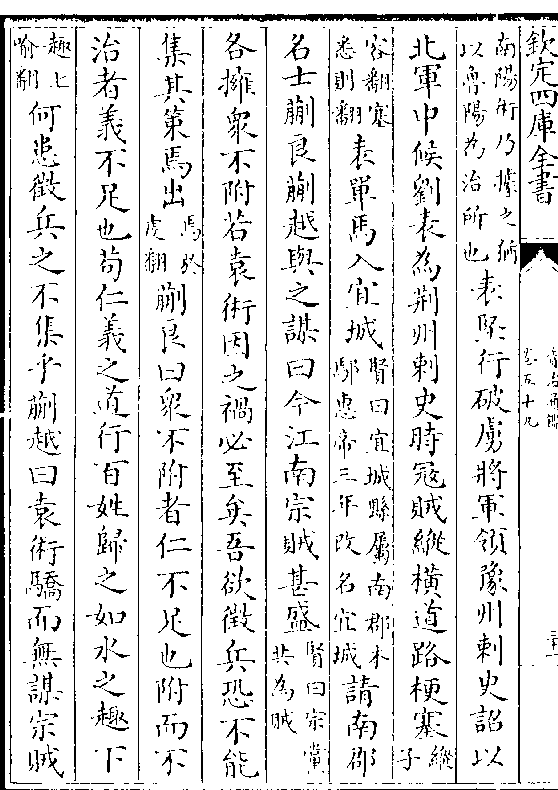 欽定四庫全書
資治通鑑
卷五十九
南陽術乃據之猶
以魯陽為治所也
表堅行破虜將軍領豫州刺史詔以
北軍中候劉表為荆州刺史時寇賊縱横道路梗塞
縱子
容翻塞
悉則翻
表單馬入宜城
賢曰宜城縣屬南郡本
鄢惠帝三年改名宜城
請南郡
名士蒯良蒯越與之謀曰今江南宗賊甚盛
賢曰宗黨
共為賊
各擁衆不附若袁術因之禍必至矣吾欲徵兵恐不能
集其策焉出
焉於
䖍翻
蒯良曰衆不附者仁不足也附而不
治者義不足也苟仁義之道行百姓歸之如水之趣下
趣七
喻翻
何患徵兵之不集乎蒯越曰袁術驕而無謀宗賊